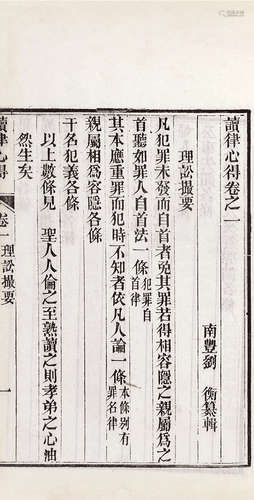 讀律心得卷之一
南豐劉　衡纂輯
理訟撮要
凡犯罪未發而自首者免其罪若得相容隱之親屬為之
首聽如罪人自首法一條犯罪自首律
其本應重罪而犯時不知者依凡人論一條本條別有罪名律
親屬相為容隱各條
干名犯義各條
以上數條見　聖人人倫之至熟讀之則孝弟之心油
然生矣
讀律心得
卷一
理訟撮要
一